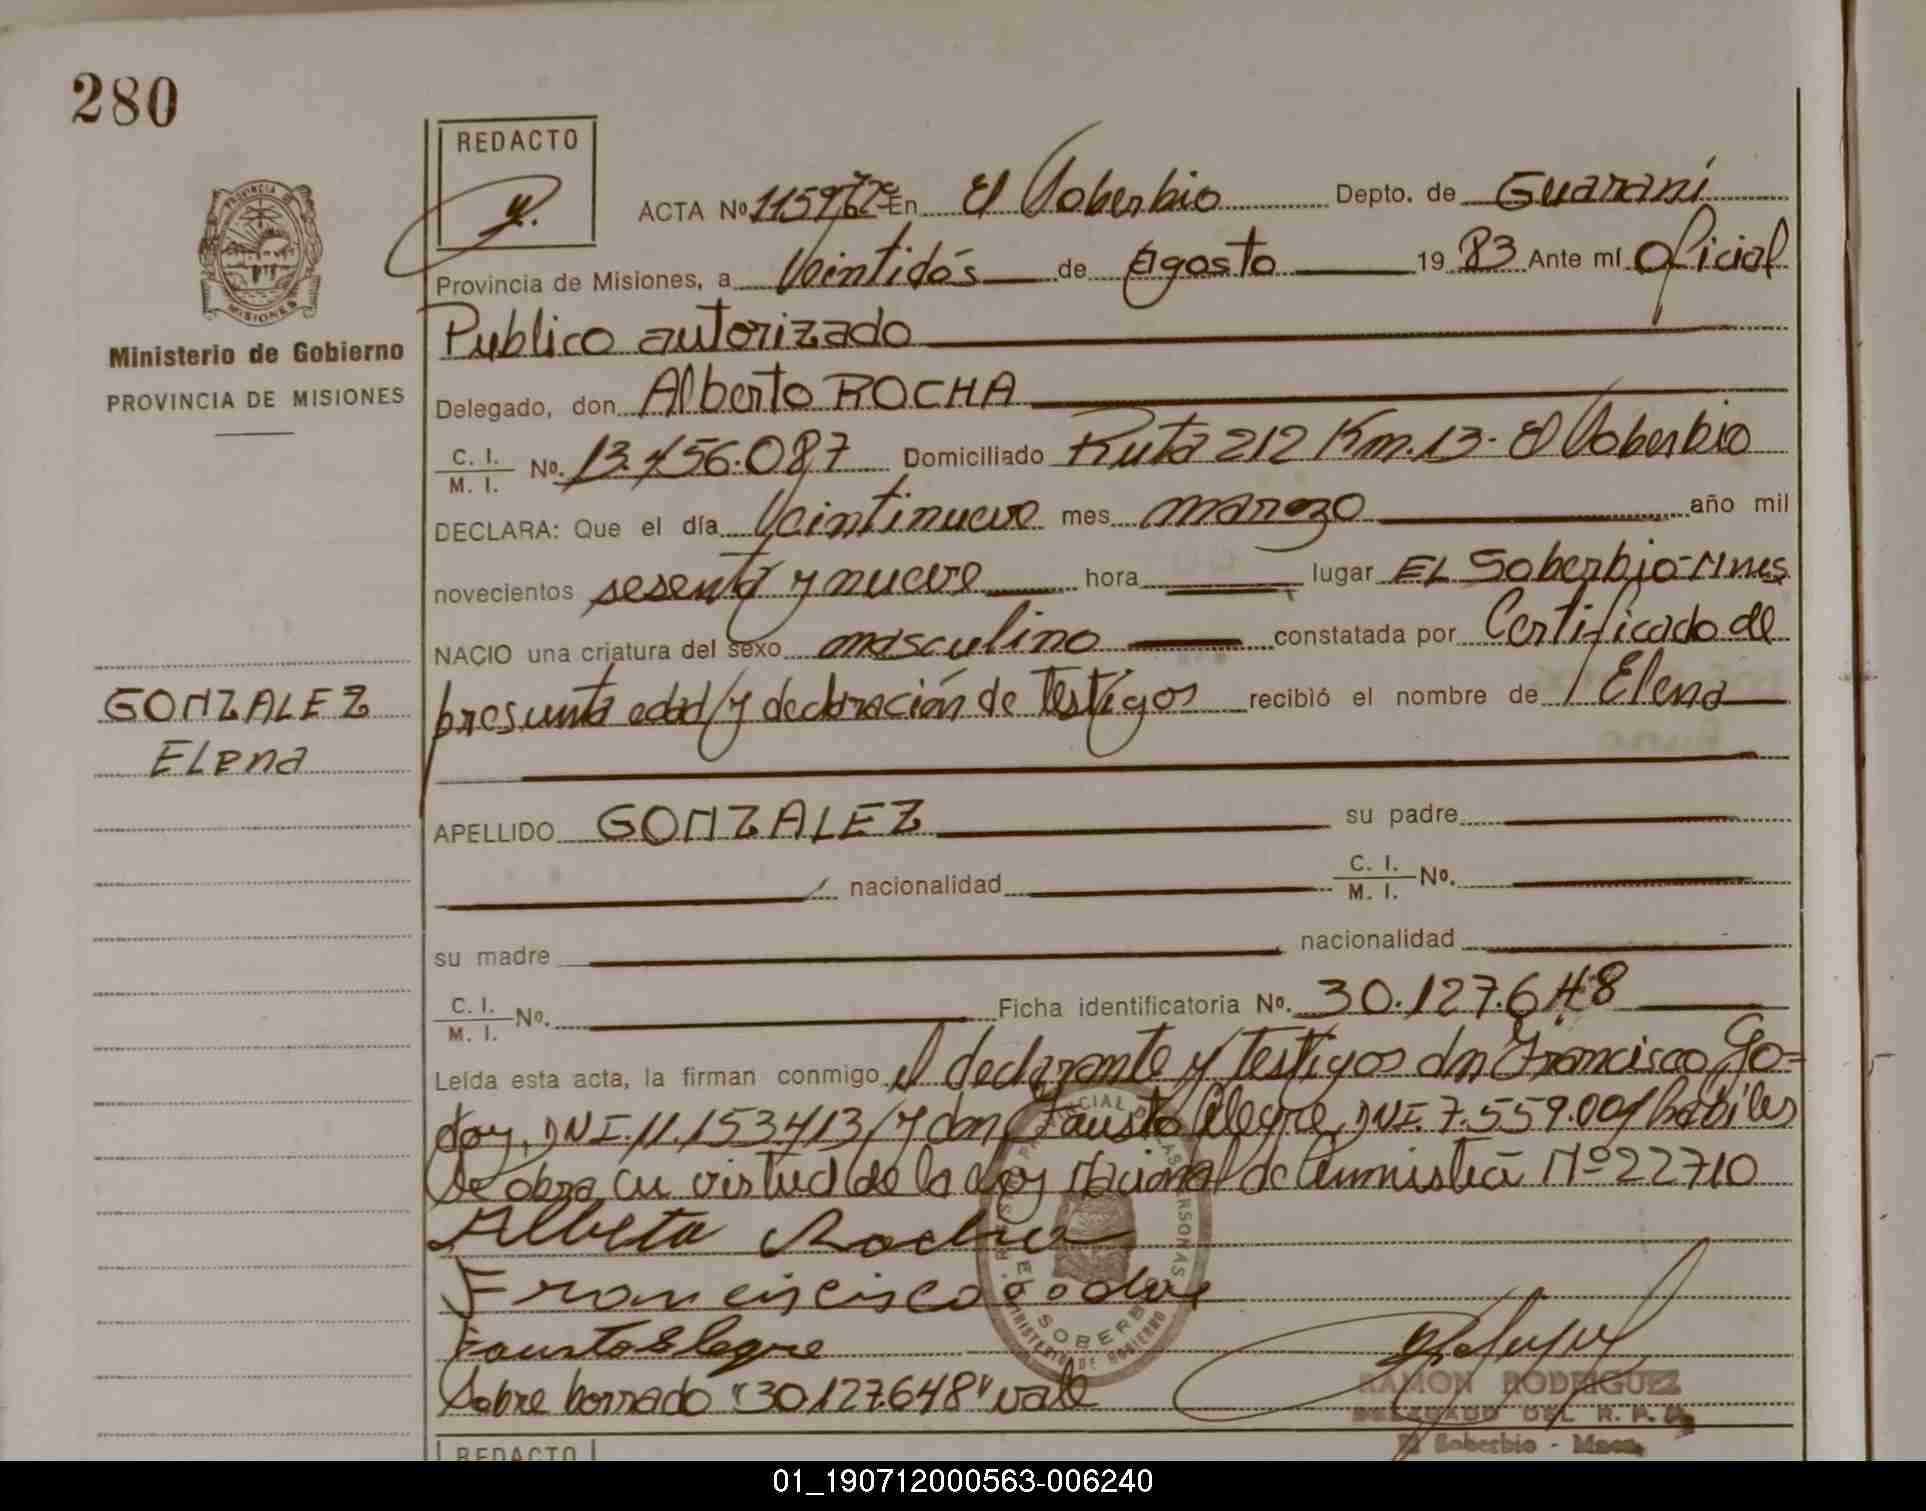 280
REDACTO
ACTA Nº En El Soberbio Depto. de Guaraní
Provincia de Misiones, a Veintidós de Agosto 1983 Ante mí Oficial
Publico autorizado
PROVINCIA
MISIONES
Ministerio de Gobierno
PROVINCIA DE MISIONES
Delegado, don Alberto ROCHA
C. I. / M. I. No. 13.456.087 Domiciliado Ruta 212 Km. 13- El Soberbio
DECLARA: Que el día Veintinueve mes marzo año mil
novecientos sesenta y nueve hora lugar EL Soberbio-Mnes
NACIO una criatura del sexo masculino constatada por Certificado de
presunta edad/y declaración de Testigos recibió el nombre de / Elena
GONZALEZ
Elena
APELLIDO GONZALEZ su padre
nacionalidad C. I. / M. I. Nº.
su madre nacionalidad
C. I. / M. I. Nº. Ficha identificatoria Nº. 30.127.648
Leída esta acta, la firman conmigo el declarante y testigos don Francisco Go=
doy, DNI. 11.153.413/y don Fausto Alegre, DNI. 7.559.001 habiles
de obra, en virtud de la Ley Nacional de Amnistia Nº 22710
Alberto Rocha
Franciscisco Godoy
Fausto Alegre
Sobre borrado "30.127.648" vale
EL SOBERBIO
MINISTERIO DE GOBIERNO
RAMON RODRIGUEZ
DELEGADO DEL R. P. P.
El Soberbio - Mnes.
REDACTO
01_190712000563-006240